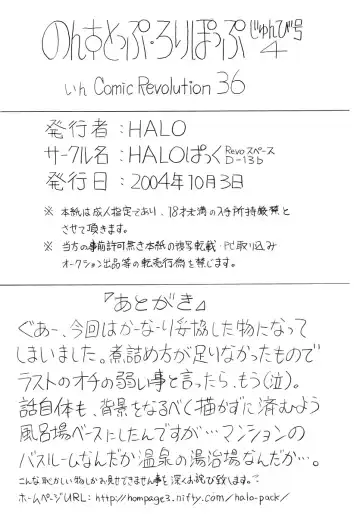 のんすとっぷ・ろりぽっぷ じゅんび号 4
いん Comic Revolution 36
発行者：HALO
サークル名：HALOぱっく Revoスペース D-13b
発行日：2004年10月3日
※ 本紙は成人指定であり、18才未満の入手所持厳禁と
させて頂きます。
※ 当方の事前許可無き本紙の複写転載・PC取り込み
オークション出品等の転売行為を禁じます。
『あとがき』
ぐあー、今回はかーなーり妥協した物になって
しまいました。煮詰め方が足りなかったもので
ラストのオチの弱い事と言ったら、もう(泣)。
話自体も、背景をなるべく描かずに済むよう
風呂場ベースにしたんですが…マンションの
バスルームなんだか温泉の湯治場なんだか…。
こんな恥かしい物しかお見せできません事を深くお詫び致します。
ホームページURL: http://hompage3.nifty.com/halo-pack/